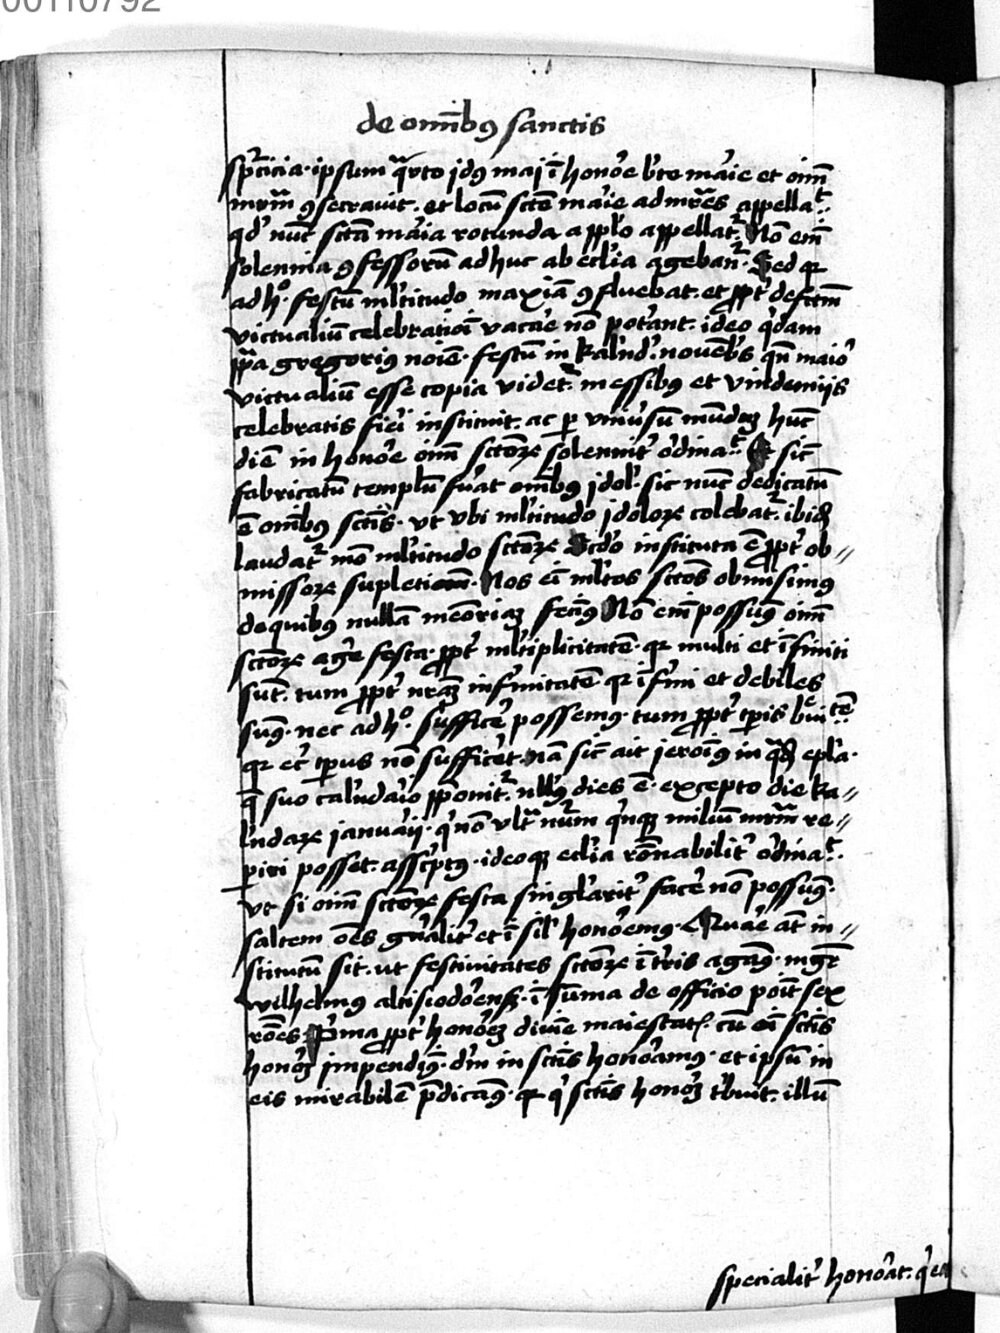 00110792
de om̄ib9 sanctis
sp̄cicia · ipsum q̄rto jd9 maj ī hono᷑e bt̄e ma᷑ie et oīm
mr̄m 9secravit. et locū sctē ma᷑ie ad mr̄es appellat᷑.
qd᷑ nūc sctā ma᷑ia rotunda a pplo᷑ appellat᷑. Nō em̄
solennia 9fessorū adhuc ab ecl᷑ia agebant᷑. Sed qr
ad h̊. festū ml᷑titudo maxiā 9fluebat. et ppt᷑ defctm̄
victualiū celebratiōi vaca᷑e nō pot᷑ant. ideo q᷑dam
ppa gregori9 noīe · festū in kal᷑nd᷑. novēb᷑s qn̄ maio᷑
victualiū esse copia videt᷑. messib9 et vindemiis
celebratis fie᷑i instituit. ac p vniu᷑sū mūdꝫ hūc
diē in hono᷑e oīm sctōꝝ solennit᷑ o᷑dina᷑t. Et sic
fabricatū templū fu᷑at om̄ib9 jdol᷑. sic nūc dedicatū
ē om̄ib9 sctīs · vt vbi ml᷑titudo jdoloꝝ colebat᷑. ibid᷑
laudat᷑ mō ml᷑titudo sctōꝝ Scd᷑o instituta ē ppt᷑ ob〃
missoꝝ supletiōem. Nos eī ml᷑tos sctōs obmisim9
de quib9 nullā meōriaꝫ feci᷑9 Nō em̄ possu᷑9 oīm
sctōꝝ age᷑ festa · ppt᷑ ml᷑tiplicitatē · qr multi et īfiniti
sūt. tum ppt᷑ nr̄aꝫ infinitatē qr īfirmi et debiles
sum9. nec ad h̊. suffice᷑ possem9 · tum ppt᷑ tp̄is b᷑uitatē.
qr ec᷑ tp̄us nō suffice᷑t. nā sic᷑ ait jeroni᷑9 in q̄dā epl᷑a ·
q̄ suo cal᷑nda᷑io pponit᷑. null9 dies ē · excepto die ka〃
l᷑ndaꝝ janua᷑ij · q᷑ nō vlt᷑ nūm q᷑nqꝫ miliū mr̄m re〃
piri posset. asscript9 · ideoqꝫ ecl᷑ia rōnabilit᷑ o᷑dina᷑t.
vt si oīm sctōꝝ festa singl᷑arit᷑ face᷑ nō possum9.
saltem oēs gn᷑alit᷑ et ī sil᷑ hono᷑em9 · Qua᷑e at᷑ in〃
stitutū sit. ut festivitates sctōꝝ ī tr̄is agam9. mgr̄
wilhelm9 altisiodo᷑ens᷑. ī sūma de officio poīt sex
rōnes. P᷑ma ppt᷑ hono᷑eꝫ divīe maiestat᷑. cū eī sctīs
hono᷑ꝫ jmpendim9. dm̄ in sctīs hono᷑am9 · et ipsū in
eis mirabilē p̄dicam9 · qr q᷑ sctīs hono᷑ꝫ t᷑buit. illū
specialit᷑ hono᷑at. q᷑ eos